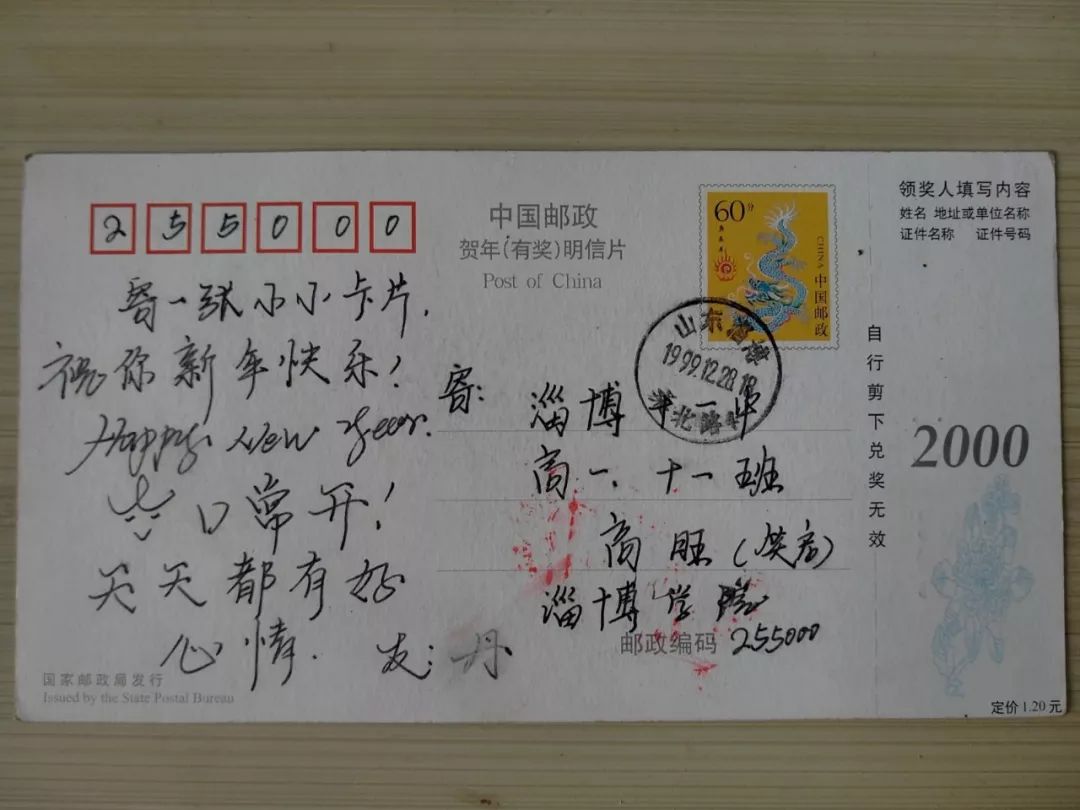 255000
中国邮政
贺年(有奖)明信片
Post of China
60分
庚辰年
CHINA
中国邮政
领奖人填写内容
姓名 地址或单位名称
证件名称 证件号码
寄一张小小卡片,
祝你新年快乐!
Happy New Year.
口常开!
天天都有好
心情. 友: 丹
山东
1999.12.28.18
北路
寄: 淄博一中
高一. 十一班
高旺(
淄博学院
邮政编码 255000
自行剪下兑奖无效
2000
国家邮政局发行
Issued by the State Postal Bureau
定价 1.20 元